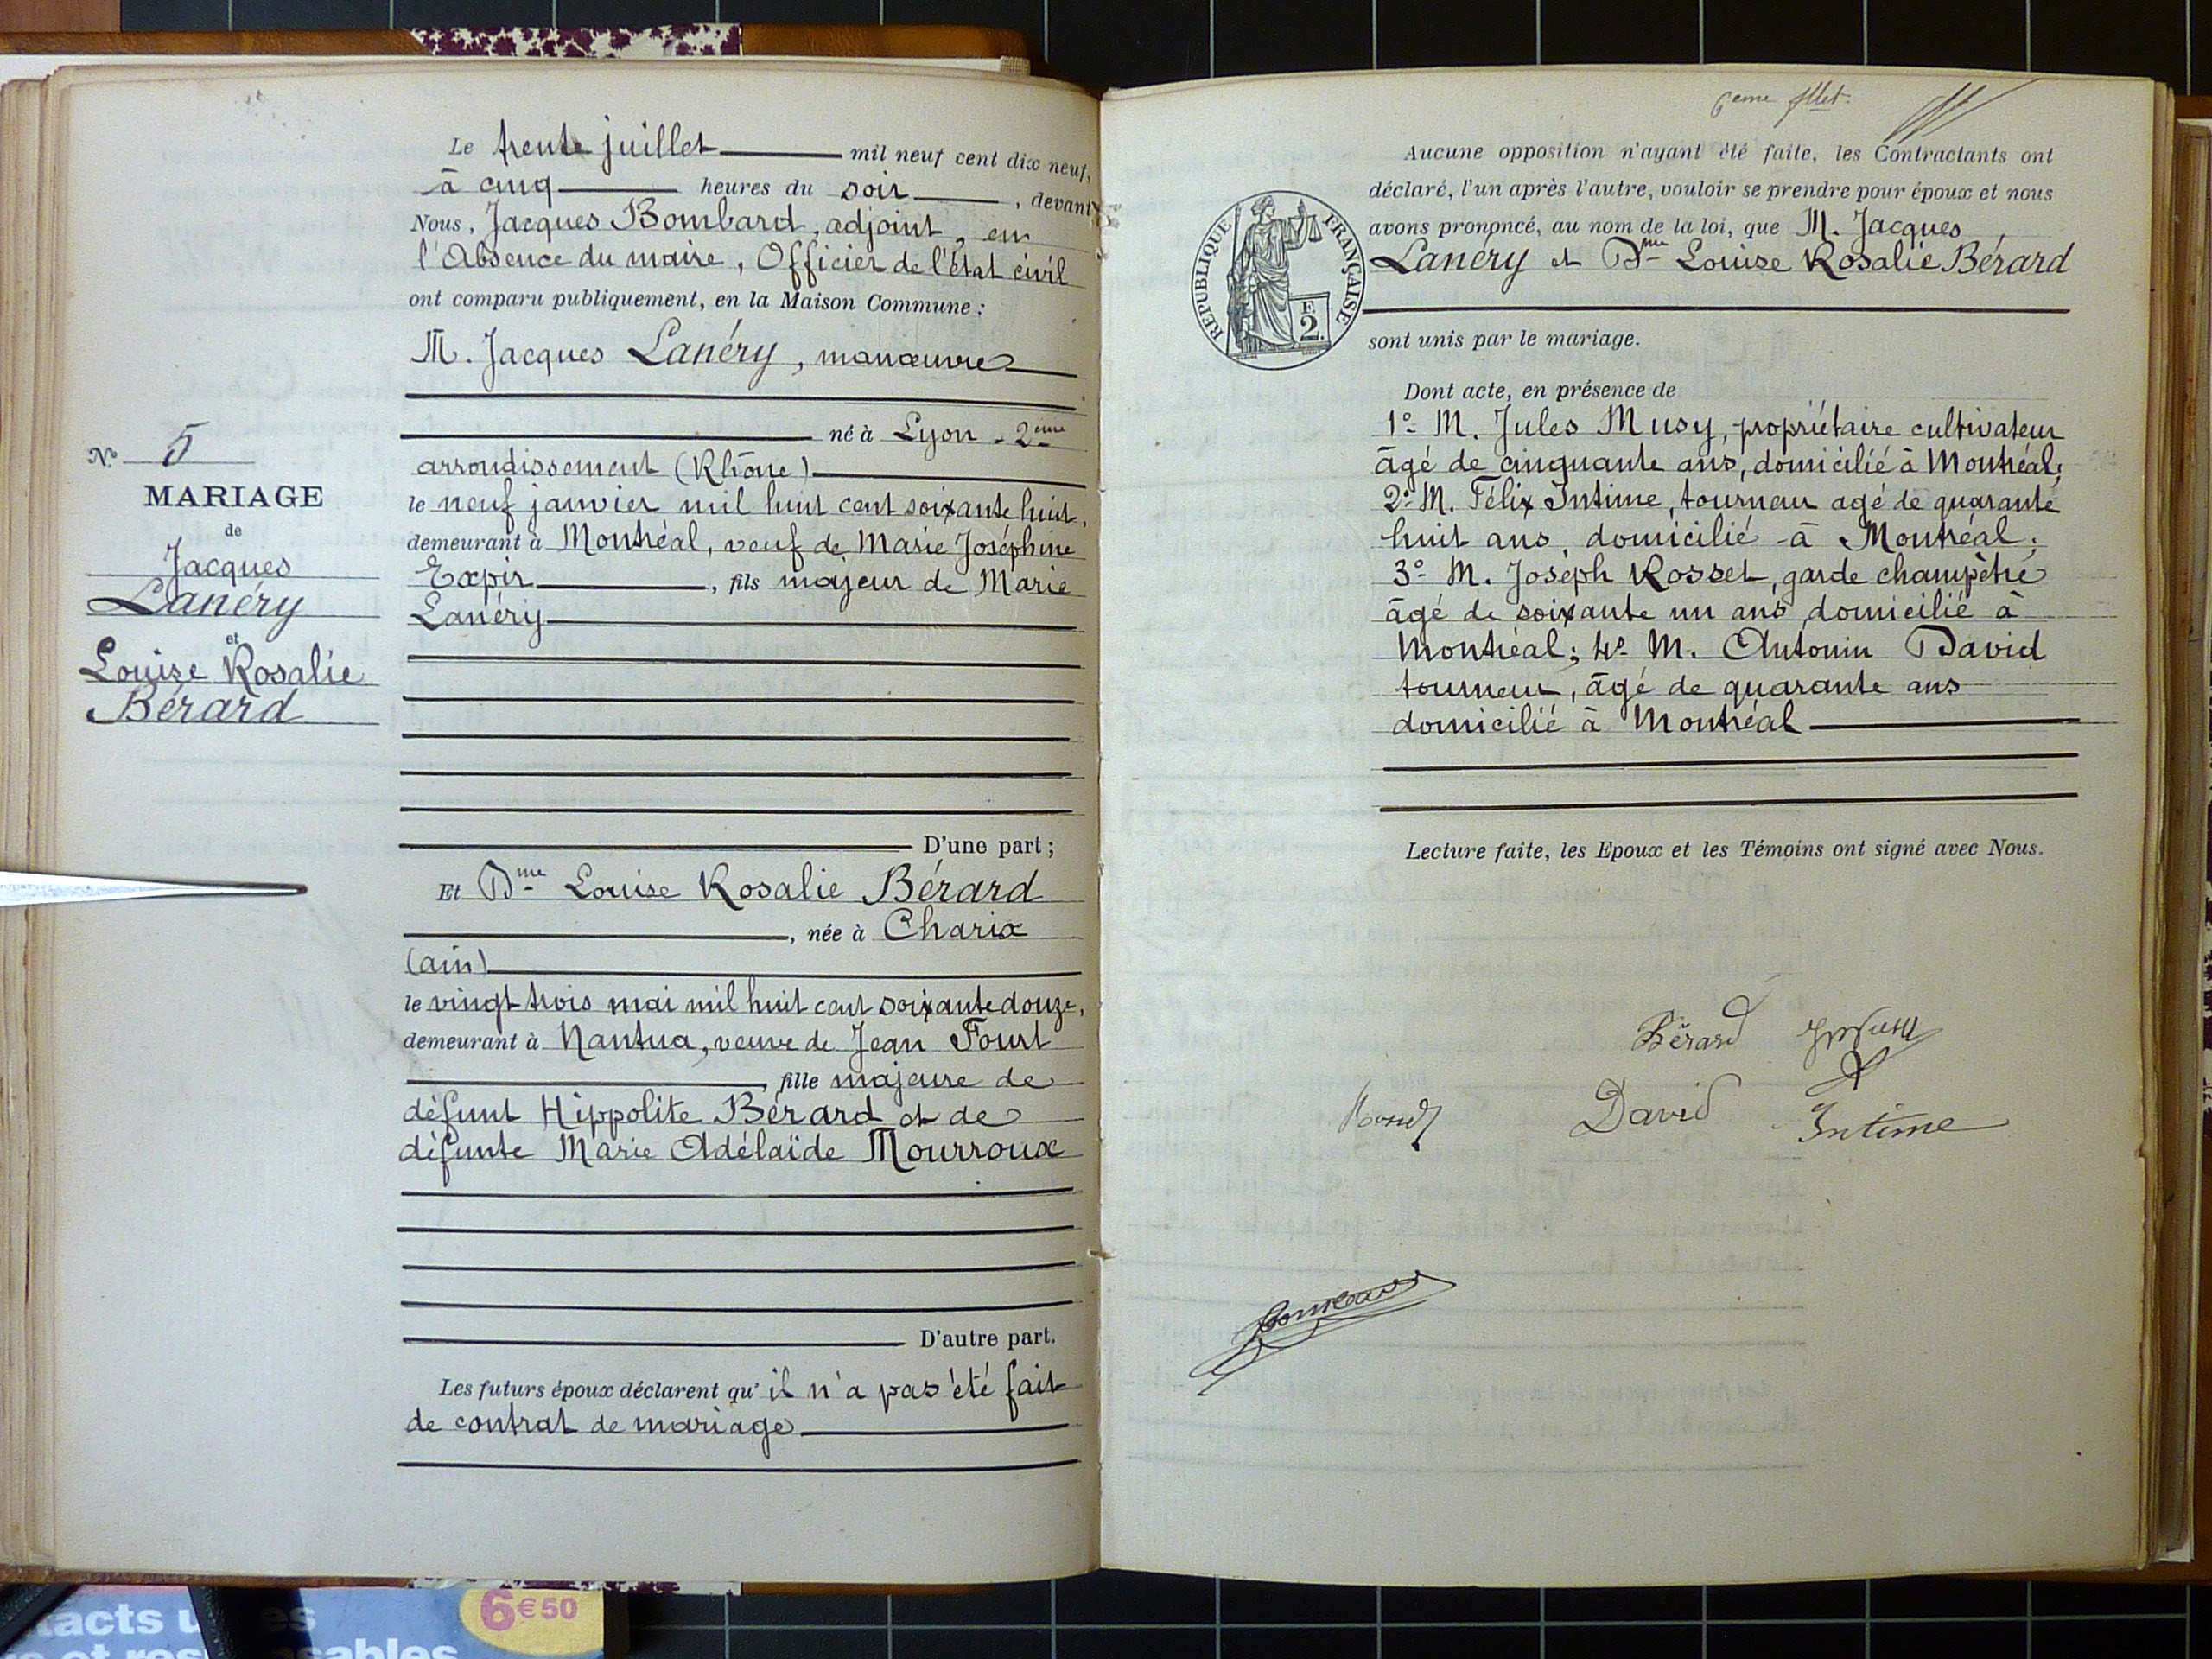 Le trente juillet mil neuf cent dix neuf,
à cinq heures du soir, devant
Nous, Jacques Bombard, adjoint, en
l'Absence du maire, Officier de l'état civil
ont comparu publiquement, en la Maison Commune :
M. Jacques Lanéry, manœuvre
né à Lyon - 2ème
arrondissement (Rhône)
le neuf janvier mil huit cent soixante huit,
demeurant à Montréal, veuf de Marie Joséphine
Expir, fils majeur de Marie
Lanéry
N° 5
MARIAGE
de
Jacques
Lanéry
et
Louise Rosalie
Bérard
D'une part ;
Et Dme Louise Rosalie Bérard
, née à Charix
(ain)
le vingt trois mai mil huit cent soixante douze,
demeurant à Nantua, veuve de Jean Fourt
, fille majeure de
défunt Hippolite Bérard et de
défunte Marie Adélaïde Mourroux
D'autre part.
Les futurs époux déclarent qu'il n'a pas été fait
de contrat de mariage
6eme fllet.
Aucune opposition n'ayant été faite, les Contractants ont
déclaré, l'un après l'autre, vouloir se prendre pour époux et nous
avons prononcé, au nom de la loi, que M. Jacques
Lanéry et Dme Louise Rosalie Bérard
sont unis par le mariage.
RÉPUBLIQUE FRANÇAISE
F
2.
Dont acte, en présence de
1° M. Jules Musy, propriétaire cultivateur
âgé de cinquante ans, domicilié à Montréal;
2° M. Félix Intime, tourneur agé de quarante
huit ans, domicilié à Montréal;
3° M. Joseph Rosset, garde champêtre
âgé de soixante un ans domicilié à
Montréal; 4° M. Antonin David
tourneur, âgé de quarante ans
domicilié à Montréal
Lecture faite, les Epoux et les Témoins ont signé avec Nous.
Bérard
David
Intime
6€50
tacts u es
sables